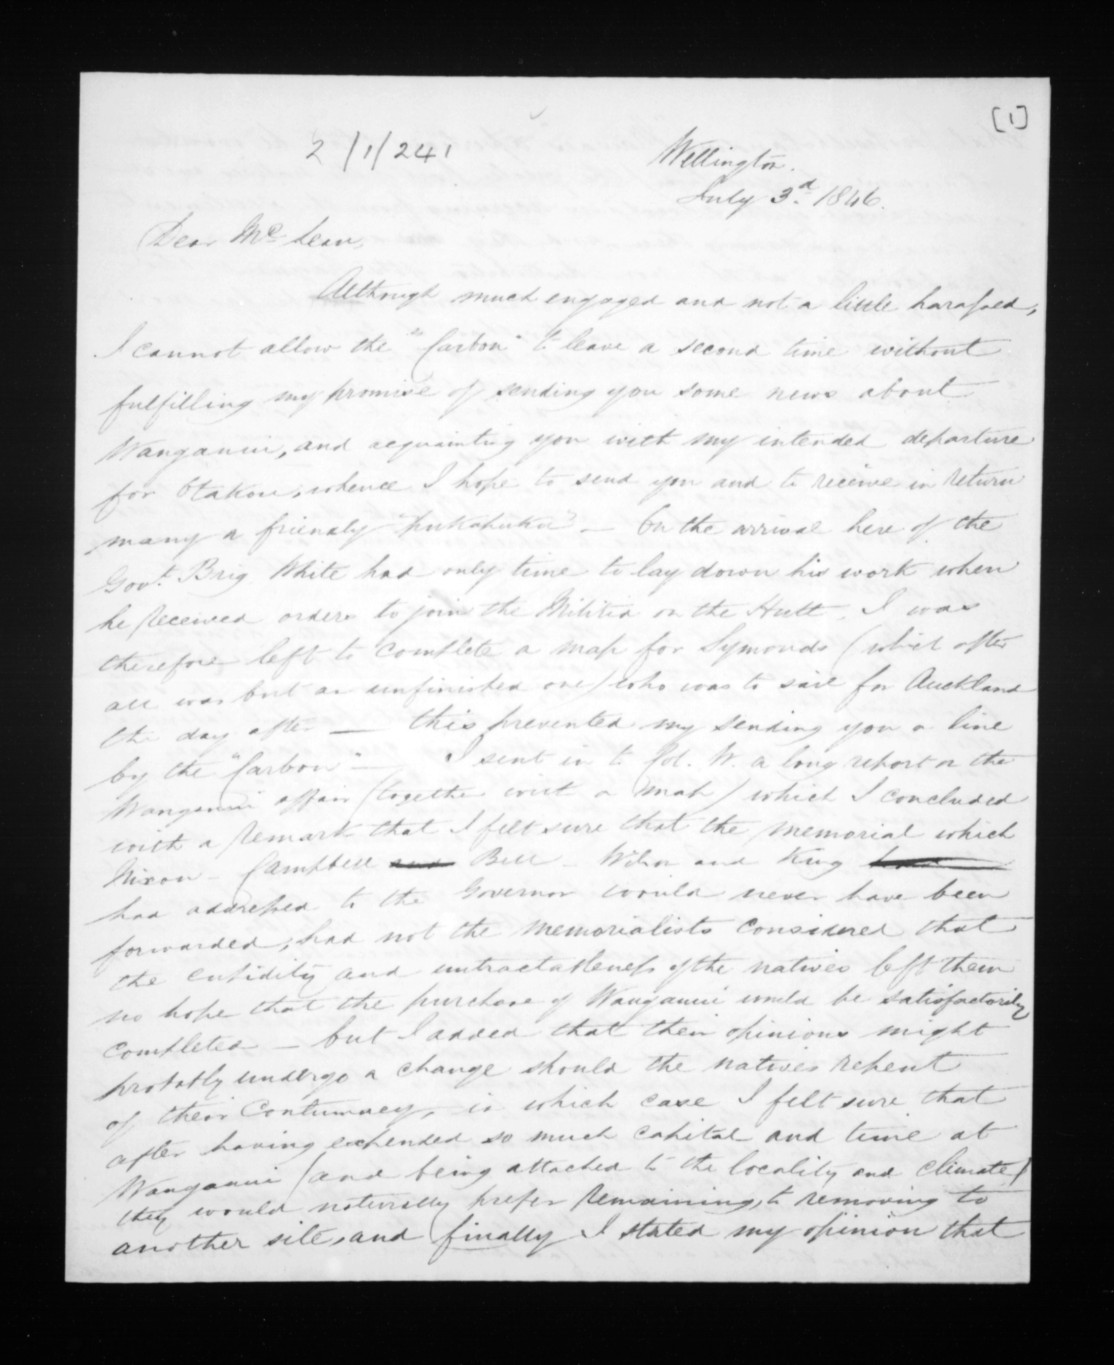 [1]
2/1/241
Wellington.
July 3.d 1846.
Dear McLean,
Although much engaged and not a little harassed,
I cannot allow the "Carbon" to leave a second time without
fulfilling my promise of sending you some news about
Wanganui, and acquainting you with my intended departure
for Otakou, whence I hope to send you and to receive in return
many a friendly "pukapuka" – On the arrival here of the
Govt. Brig White had only time to lay down his work when
he received orders to join the Militia on the Hutt. I was
therefore left to complete a map for Symonds (which after
all was but an unfinished one) who was to sail for Auckland
the day after — this prevented my sending you a line
by the "Carbon" — I sent in to Col. W. a long report on the
Wanganui affair (together with a map) which I concluded
with a remark that I felt sure that the memorial which
Nixon – Campbell and Bell – Wilson and King
had addressed to the Governor would never have been
forwarded, had not the memorialists considered that
the cupidity and untractableness of the natives left them
no hope that the purchase of Wanganui would be satisfactorily
completed – but I added that their opinions might
probably undergo a change should the natives repent
of their Contumacy, in which case I felt sure that
after having expended so much capital and time at
Wanganui (and being attached to the locality and climate)
they would naturally prefer remaining, to removing to
another site, and finally I stated my opinion that